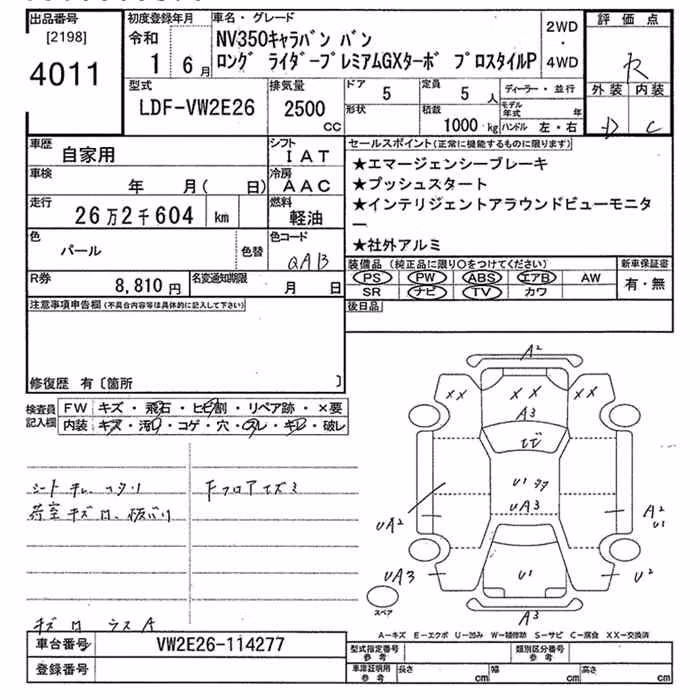 出品番号
[2198]
4011
初度登録年月
令和
1 6月
車名・グレード
NV350キャラバン バン
ロング ライダープレミアムGXターボ プロスタイルP
2WD
・
4WD
評価点
R
外装 内装
D C
型式
LDF-VW2E26
排気量
2500
CC
ドア
5
定員
5 人
ディーラー・並行
モデル年式 年
形状
積載
1000 kg
ハンドル 左・右
車歴
自家用
シフト
IAT
車検
年 月( 日)
冷房
AAC
走行
26万2千604 km
燃料
軽油
色
パール
色替
色コード
QAB
R券
8,810 円
名変通知期限
月 日
セールスポイント(正常に機能するものに限ります)
★エマージェンシーブレーキ
★プッシュスタート
★インテリジェントアラウンドビューモニタ
ー
★社外アルミ
装備品(純正品に限り○をつけてください)
PS PW ABS エアB AW
SR ナビ TV カワ
新車保証書
有・無
後日品
注意事項申告欄(不具合内容等は具体的に記入して下さい)
修復歴 有〔箇所 〕
検査員
記入欄
FW キズ・飛石・ヒビ割・リペア跡・×要
内装 キズ・汚れ・コゲ・穴・スレ・キレ・破レ
シート キレ、
荷室キズ凹、
Fフロア
キズ 凹
A2
XX
XX
XX
A3
U1
UA3
UA2
A2
U1
UA3
U2
U1
A3
スペア
A－キズ E－エクボ U－凹み W－補修跡 S－サビ C－腐食 XX－交換済
車台番号
VW2E26-114277
登録番号
型式指定番号
参考
類別区分番号
参考
車庫証明用
参考
長さ cm
幅 cm
高さ cm